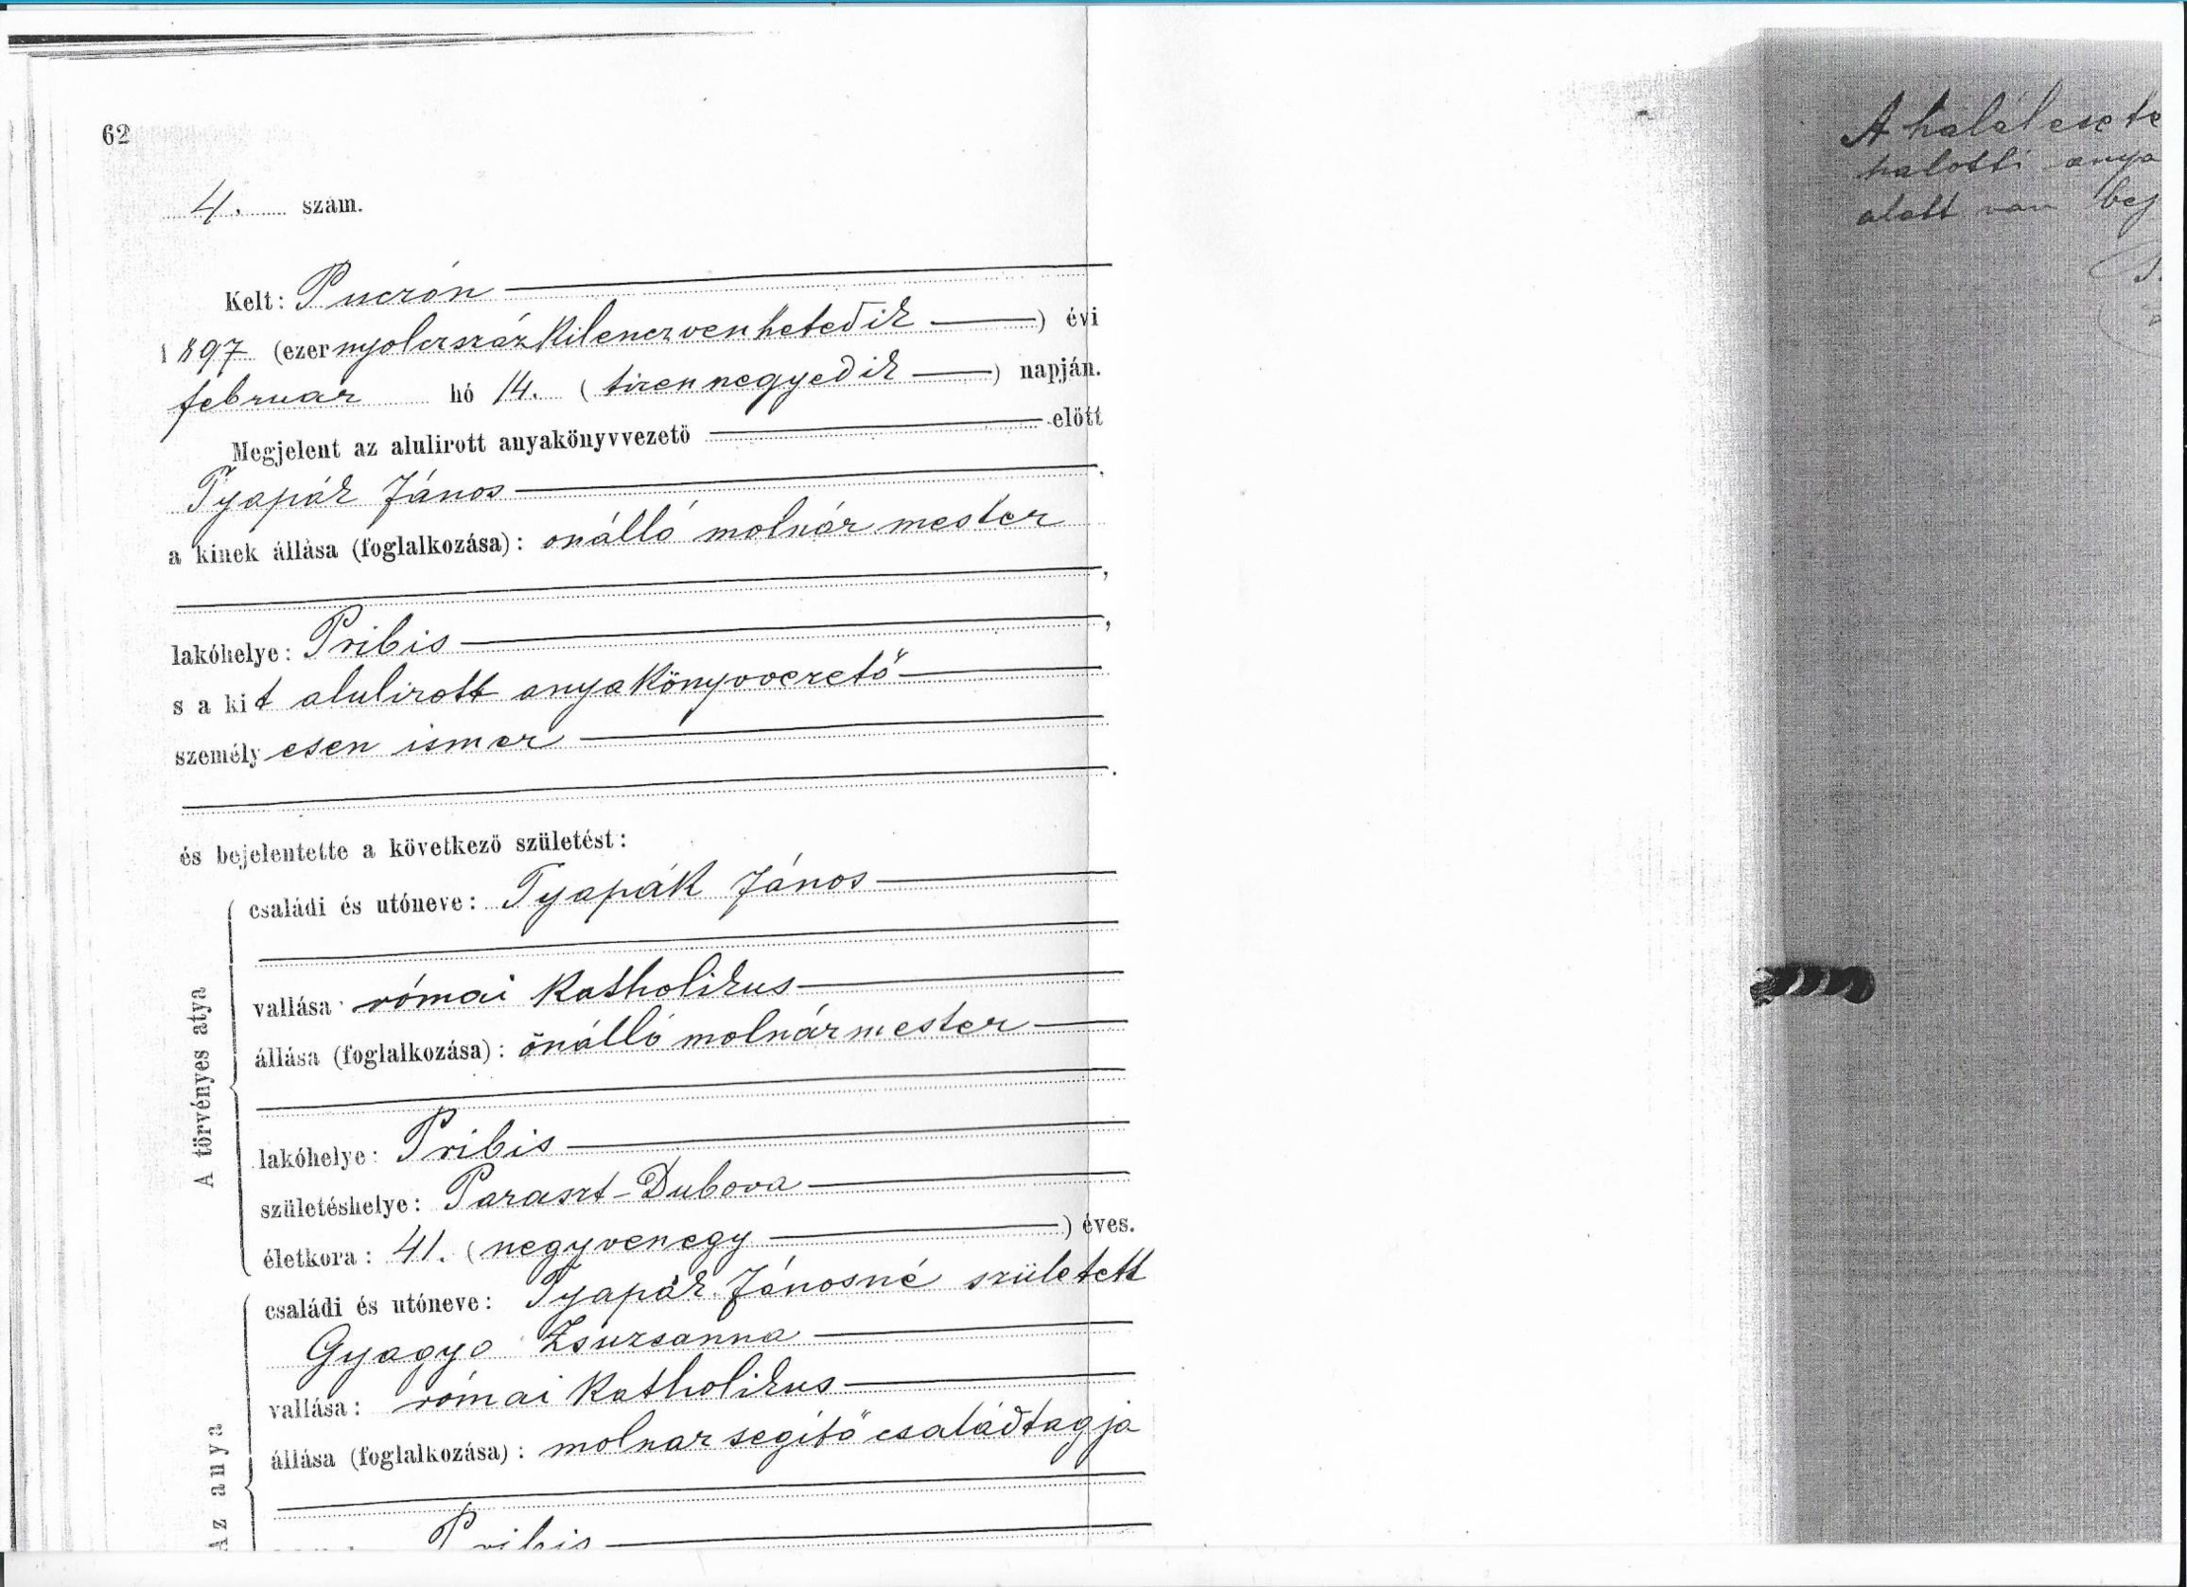 62
4. szám.
Kelt: Pucrón
1897 (ezernyolczszázkilenczvenhetedik) évi
február hó 14. (tizennegyedik) napján.
Megjelent az alulirott anyakönyvvezető előtt
Tyapák János
a kinek állása (foglalkozása): önálló molnár mester,
lakóhelye: Pribis,
s a kit alulirott anyakönyvvezető
személyesen ismer.
és bejelentette a következő születést:
A törvényes atya
családi és utóneve: Tyapák János
vallása: római katholikus
állása (foglalkozása): önálló molnármester
lakóhelye: Pribis
születéshelye: Paraszt-Dubova
életkora: 41. (negyvenegy) éves.
Az anya
családi és utóneve: Tyapák Jánosné született
Gyagyo Zsuzsanna
vallása: római katholikus
állása (foglalkozása): molnar segítő családtagja
Pribis
A halálesete
halotti anya
alatt van bej